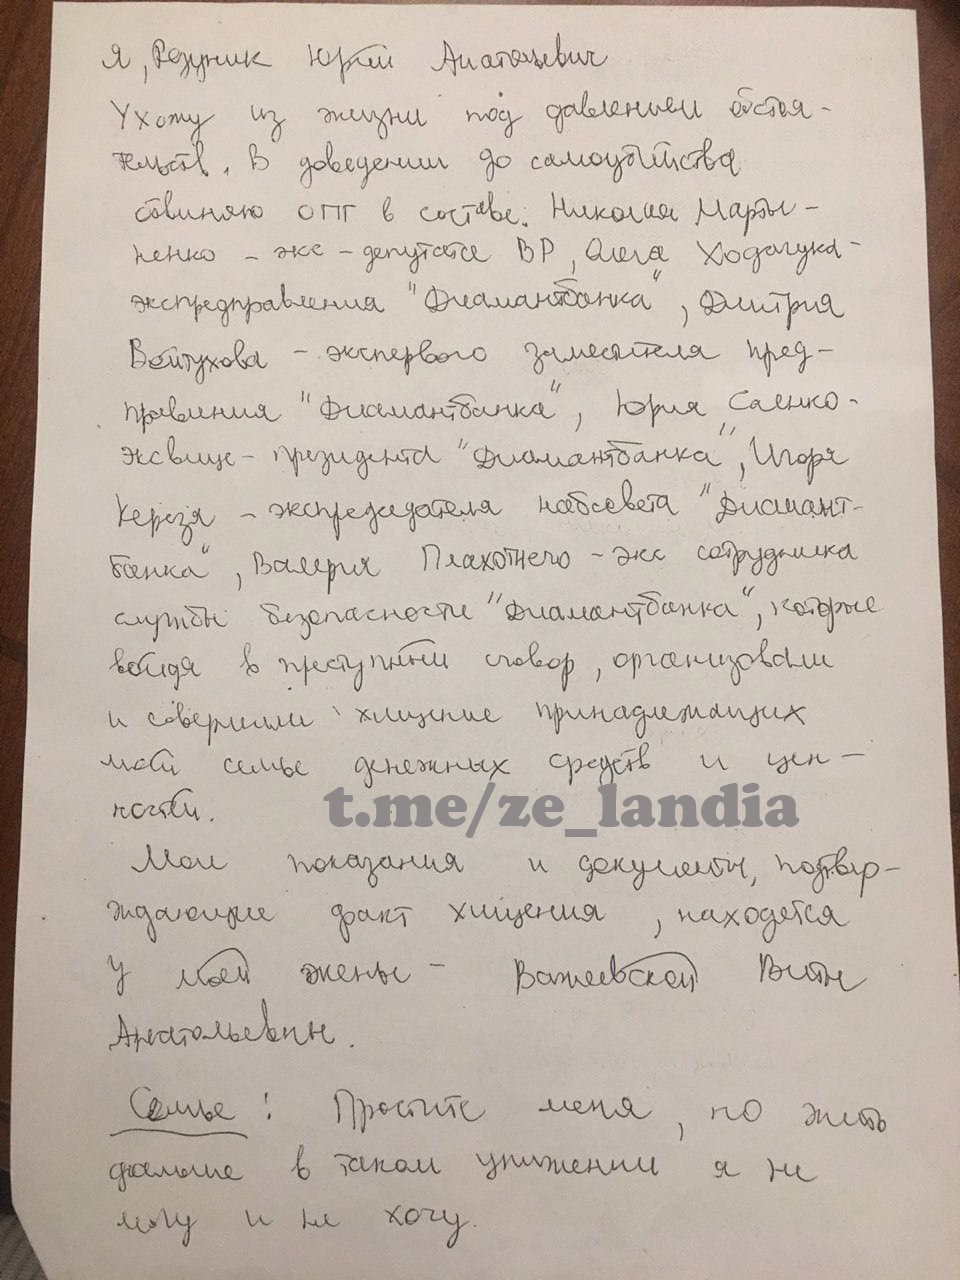 Я, Разуник Юрий Анатольевич
Ухожу из жизни под давлением обстоя-
тельств. В доведении до самоубийства
обвиняю ОПГ в составе: Николая Марты-
ненко - экс-депутата ВР, Олега Ходачука-
экспредправления "Диамантбанка", Дмитрия
Войтухова - экспервого заместителя пред-
правления "Диамантбанка", Юрия Саенко-
эксвице-президента "Диамантбанка", Игоря
Керезя - экспредседателя набсовета "Диамант-
банка", Валерия Плахотнего - экс сотрудника
службы безопасности "Диамантбанка", которые
войдя в преступный сговор, организовали
и совершили хищение принадлежащих
моей семье денежных средств и цен-
ностей.
t.me/ze_landia
Мои показания и документы, подтвер-
ждающие факт хищения, находятся
у моей жены - Важеевской Виты
Анатольевны.
Семье! Простите меня, но жить
дальше в таком унижении я не
могу и не хочу.